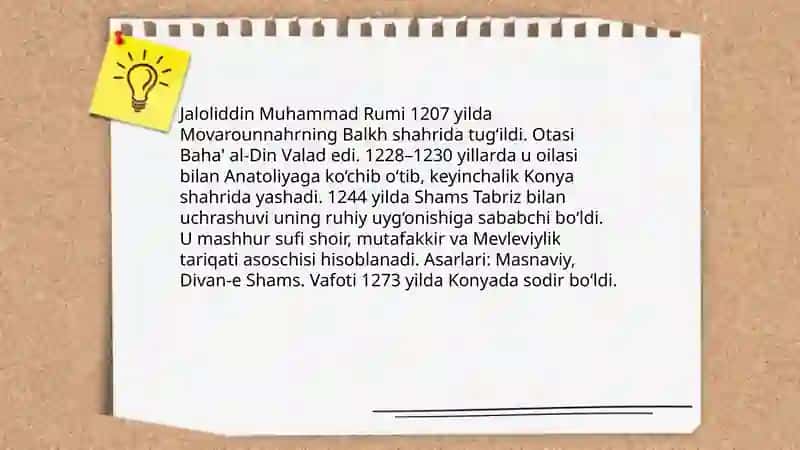 Jaloliddin Muhammad Rumi 1207 yilda
Movarounnahrning Balkh shahrida tugʻildi. Otasi
Baha' al-Din Valad edi. 1228–1230 yillarda u oilasi
bilan Anatoliyaga koʻchib oʻtib, keyinchalik Konya
shahrida yashadi. 1244 yilda Shams Tabriz bilan
uchrashuvi uning ruhiy uygʻonishiga sababchi boʻldi.
U mashhur sufi shoir, mutafakkir va Mevleviylik
tariqati asoschisi hisoblanadi. Asarlari: Masnaviy,
Divan-e Shams. Vafoti 1273 yilda Konyada sodir boʻldi.